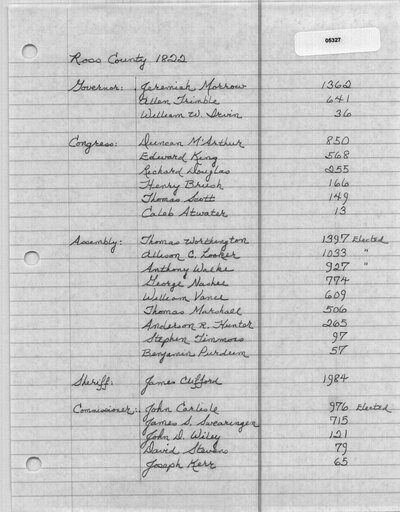 05327
Ross County 1822
Governor: Jeremiah Morrow 1362
Allen Trimble 641
William W. Irvin 36
Congress: Duncan McArthur 850
Edward King 568
Richard Douglas 255
Henry Brush 166
Thomas Scott 149
Caleb Atwater 13
Assembly: Thomas Worthington 1397 Elected
Allison C. Looker 1033 "
Anthony Walke 927 "
George Nashee 774
William Vance 609
Thomas Marshall 506
Anderson R. Hunter 265
Stephen Timmons 97
Benjamin Purdum 57
Sheriff: James Clifford 1984
Commissioner: John Carlisle 976 Elected
James S. Swearingen 715
John D. Wiley 121
David Stevens 79
Joseph Kerr 65